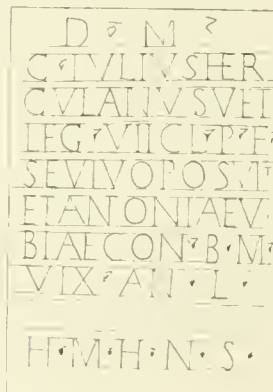 D M
C IVLIVS HER
CVLANVS VET
LEG VII CL P F
SE VIVO POSVIT
ET ANONIAE V
BIAE CON B M
VIX AN L
H M H N S